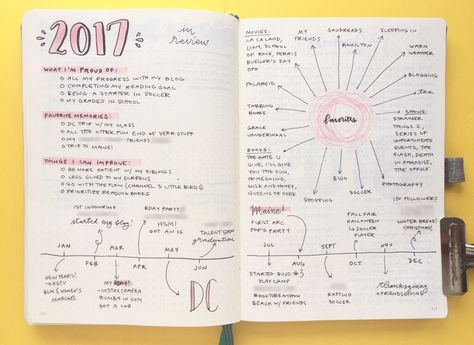 2017
in
review
WHAT I'M PROUD OF:
ALL MY PROGRESS WITH MY BLOG
COMPLETING MY READING GOAL
BEING A STARTER IN SOCCER
MY GRADES IN SCHOOL
FAVORITE MEMORIES:
DC TRIP W/ MY CLASS
ALL THE OTHER FUN END OF YEAR STUFF
MY FRIENDS
TRIP TO MAINE!
THINGS I CAN IMPROVE:
BE MORE PATIENT W/ MY SIBLINGS
LESS GLUED TO MY SCREENS
GO WITH THE FLOW (CHANNEL 3 LITTLE BIRDS)
PRIORITIZE READING BOOKS
1ST
start my blog!
BDAY PARTY!
HSM!
GOT AN IG
TALENT SHOW
graduation
JAN
FEB
MAR
APR
MAY
JUN
NEW YEAR'S!
→ HGTV
BLM & WOMEN'S
MARCHES
MY BDAY!
- INSTAX CAMERA
RUMBA IN GYM
GOT A LOB
DC
MOVIES:
LA LA LAND,
LION, SCHOOL
OF ROCK, FERRIS
BUELLER'S DAY
OFF
MY
FRIENDS
GOODREADS
HAMILTON
SLEEPING IN
WARM
WEATHER
BLOGGING
tea
POLAROID
TABBING
BOOKS
GRACE
VANDERWAAL
favorites
SHOWS:
STRANGER
THINGS 2,
SERIES OF
UNFORTUNATE
EVENTS, THE
FLASH, DEATH
IN PARADISE, THE
OFFICE
BOOKS:
THE HATE U
GIVE, I'LL GIVE
YOU THE SUN,
MILK AND HONEY,
SHOPPING
BUJO
SOCCER
PHOTOGRAPHY
Maine!
FIRST ARC
POP'S PARTY
FALL FAIR
HALLOWEEN
SOCCER
PLAYER
IG FOLLOWERS)
WINTER BREAK!
CHRISTMAS!
JUL
AUG
SEPT
OCT
NOV
DEC
STARTED BUJO #3
PLAY CAMP
BEACH W/ FRIENDS
SOCCER
thanksgiving
+ FRIENDSGIVING